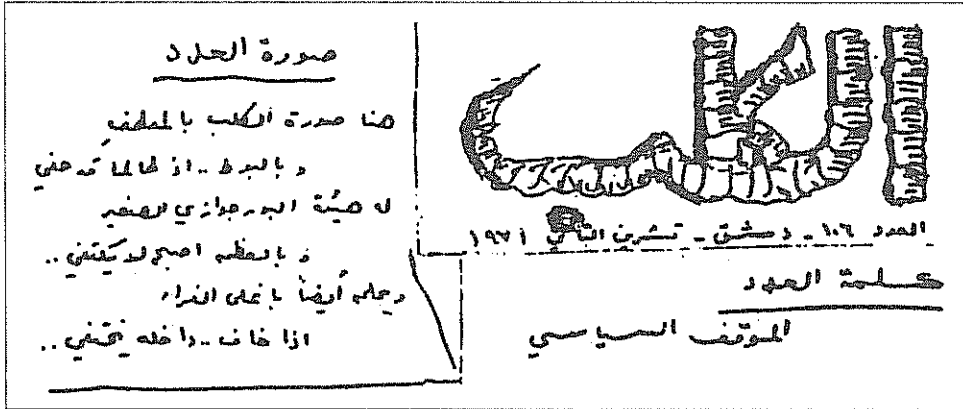 الكلب
العدد ١٠٦ - دمشق - تشرين الثاني ١٩٧١
كلمة العدد
الموقف السياسي
صورة العدد
هنا صورة الكلب بالمعطفِ
وبالبوط .. اذ طالما قد حفي
له هيئة البورجوازي الصغير
وبالعظم اصبح لا يكتفي ..
ويحلم أيضاً بأغلى الفراء
اذا خاف .. داخله يختفي ..